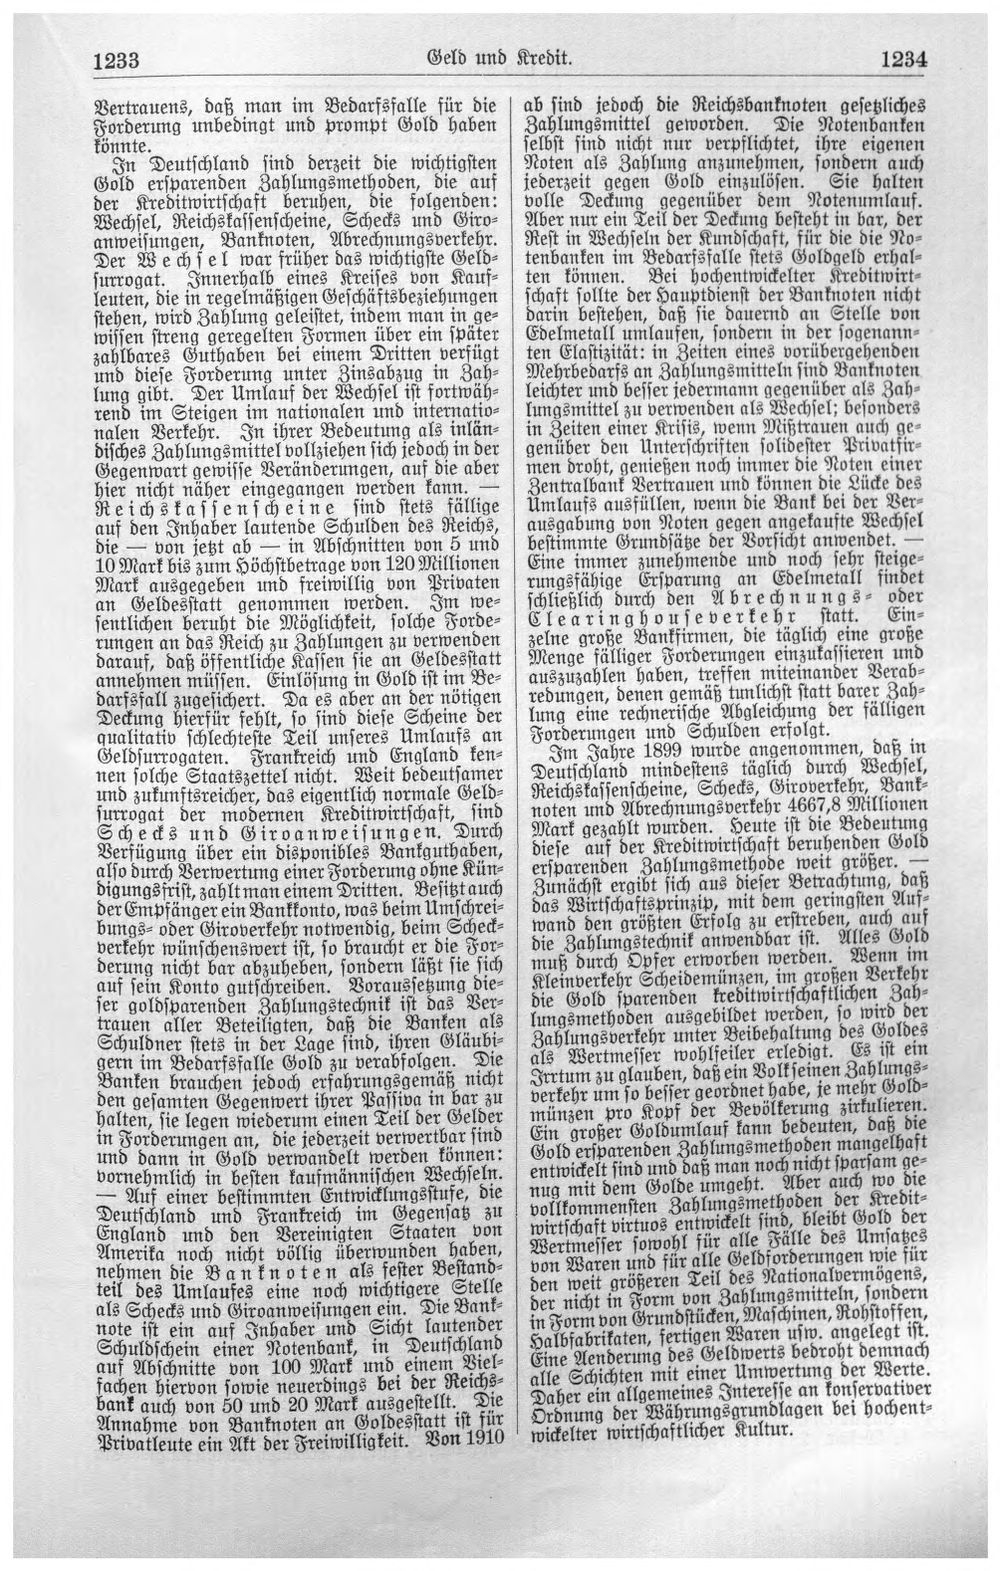 1233
Geld und Kredit.
1234
Vertrauens, daß man im Bedarfsfalle für die
Forderung unbedingt und prompt Gold haben
könnte.
In Deutschland sind derzeit die wichtigsten
Gold ersparenden Zahlungsmethoden, die auf
der Kreditwirtschaft beruhen, die folgenden:
Wechsel, Reichskassenscheine, Schecks und Giro-
anweisungen, Banknoten, Abrechnungsverkehr.
Der Wechsel war früher das wichtigste Geld-
surrogat. Innerhalb eines Kreises von Kauf-
leuten, die in regelmäßigen Geschäftsbeziehungen
stehen, wird Zahlung geleistet, indem man in ge-
wissen streng geregelten Formen über ein später
zahlbares Guthaben bei einem Dritten verfügt
und diese Forderung unter Zinsabzug in Zah-
lung gibt. Der Umlauf der Wechsel ist fortwäh-
rend im Steigen im nationalen und internatio-
nalen Verkehr. In ihrer Bedeutung als inlän-
disches Zahlungsmittel vollziehen sich jedoch in der
Gegenwart gewisse Veränderungen, auf die aber
hier nicht näher eingegangen werden kann. —
Reichskassenscheine sind stets fällige
auf den Inhaber lautende Schulden des Reichs,
die — von jetzt ab — in Abschnitten von 5 und
10 Mark bis zum Höchstbetrage von 120 Millionen
Mark ausgegeben und freiwillig von Privaten
an Geldesstatt genommen werden. Im we-
sentlichen beruht die Möglichkeit, solche Forde-
rungen an das Reich zu Zahlungen zu verwenden
darauf, daß öffentliche Kassen sie an Geldesstatt
annehmen müssen. Einlösung in Gold ist im Be-
darfsfall zugesichert. Da es aber an der nötigen
Deckung hierfür fehlt, so sind diese Scheine der
qualitativ schlechteste Teil unseres Umlaufs an
Geldsurrogaten. Frankreich und England ken-
nen solche Staatszettel nicht. Weit bedeutsamer
und zukunftsreicher, das eigentlich normale Geld-
surrogat der modernen Kreditwirtschaft, sind
Schecks und Giroanweisungen. Durch
Verfügung über ein disponibles Bankguthaben,
also durch Verwertung einer Forderung ohne Kün-
digungsfrist, zahlt man einem Dritten. Besitzt auch
der Empfänger ein Bankkonto, was beim Umschrei-
bungs- oder Giroverkehr notwendig, beim Scheck-
verkehr wünschenswert ist, so braucht er die For-
derung nicht bar abzuheben, sondern läßt sie sich
auf sein Konto gutschreiben. Voraussetzung die-
ser goldsparenden Zahlungstechnik ist das Ver-
trauen aller Beteiligten, daß die Banken als
Schuldner stets in der Lage sind, ihren Gläubi-
gern im Bedarfsfalle Gold zu verabfolgen. Die
Banken brauchen jedoch erfahrungsgemäß nicht
den gesamten Gegenwert ihrer Passiva in bar zu
halten, sie legen wiederum einen Teil der Gelder
in Forderungen an, die jederzeit verwertbar sind
und dann in Gold verwandelt werden können:
vornehmlich in besten kaufmännischen Wechseln.
— Auf einer bestimmten Entwicklungsstufe, die
Deutschland und Frankreich im Gegensatz zu
England und den Vereinigten Staaten von
Amerika noch nicht völlig überwunden haben,
nehmen die Banknoten als fester Bestand-
teil des Umlaufes eine noch wichtigere Stelle
als Schecks und Giroanweisungen ein. Die Bank-
note ist ein auf Inhaber und Sicht lautender
Schuldschein einer Notenbank, in Deutschland
auf Abschnitte von 100 Mark und einem Viel-
fachen hiervon sowie neuerdings bei der Reichs-
bank auch von 50 und 20 Mark ausgestellt. Die
Annahme von Banknoten an Goldesstatt ist für
Privatleute ein Akt der Freiwilligkeit. Von 1910
ab sind jedoch die Reichsbanknoten gesetzliches
Zahlungsmittel geworden. Die Notenbanken
selbst sind nicht nur verpflichtet, ihre eigenen
Noten als Zahlung anzunehmen, sondern auch
jederzeit gegen Gold einzulösen. Sie halten
volle Deckung gegenüber dem Notenumlauf.
Aber nur ein Teil der Deckung besteht in bar, der
Rest in Wechseln der Kundschaft, für die die No-
tenbanken im Bedarfsfalle stets Goldgeld erhal-
ten können. Bei hochentwickelter Kreditwirt-
schaft sollte der Hauptdienst der Banknoten nicht
darin bestehen, daß sie dauernd an Stelle von
Edelmetall umlaufen, sondern in der sogenann-
ten Elastizität: in Zeiten eines vorübergehenden
Mehrbedarfs an Zahlungsmitteln sind Banknoten
leichter und besser jedermann gegenüber als Zah-
lungsmittel zu verwenden als Wechsel; besonders
in Zeiten einer Krisis, wenn Mißtrauen auch ge-
genüber den Unterschriften solidester Privatfir-
men droht, genießen noch immer die Noten einer
Zentralbank Vertrauen und können die Lücke des
Umlaufs ausfüllen, wenn die Bank bei der Ver-
ausgabung von Noten gegen angekaufte Wechsel
bestimmte Grundsätze der Vorsicht anwendet. —
Eine immer zunehmende und noch sehr steige-
rungsfähige Ersparung an Edelmetall findet
schließlich durch den Abrechnungs- oder
Clearinghouseverkehr statt. Ein-
zelne große Bankfirmen, die täglich eine große
Menge fälliger Forderungen einzukassieren und
auszuzahlen haben, treffen miteinander Verab-
redungen, denen gemäß tunlichst statt barer Zah-
lung eine rechnerische Abgleichung der fälligen
Forderungen und Schulden erfolgt.
Im Jahre 1899 wurde angenommen, daß in
Deutschland mindestens täglich durch Wechsel,
Reichskassenscheine, Schecks, Giroverkehr, Bank-
noten und Abrechnungsverkehr 4667,8 Millionen
Mark gezahlt wurden. Heute ist die Bedeutung
diese auf der Kreditwirtschaft beruhenden Gold
ersparenden Zahlungsmethode weit größer. —
Zunächst ergibt sich aus dieser Betrachtung, daß
das Wirtschaftsprinzip, mit dem geringsten Auf-
wand den größten Erfolg zu erstreben, auch auf
die Zahlungstechnik anwendbar ist. Alles Gold
muß durch Opfer erworben werden. Wenn im
Kleinverkehr Scheidemünzen, im großen Verkehr
die Gold sparenden kreditwirtschaftlichen Zah-
lungsmethoden ausgebildet werden, so wird der
Zahlungsverkehr unter Beibehaltung des Goldes
als Wertmesser wohlfeiler erledigt. Es ist ein
Irrtum zu glauben, daß ein Volk seinen Zahlungs-
verkehr um so besser geordnet habe, je mehr Gold-
münzen pro Kopf der Bevölkerung zirkulieren.
Ein großer Goldumlauf kann bedeuten, daß die
Gold ersparenden Zahlungsmethoden mangelhaft
entwickelt sind und daß man noch nicht sparsam ge-
nug mit dem Golde umgeht. Aber auch wo die
vollkommensten Zahlungsmethoden der Kredit-
wirtschaft virtuos entwickelt sind, bleibt Gold der
Wertmesser sowohl für alle Fälle des Umsatzes
von Waren und für alle Geldforderungen wie für
den weit größeren Teil des Nationalvermögens,
der nicht in Form von Zahlungsmitteln, sondern
in Form von Grundstücken, Maschinen, Rohstoffen,
Halbfabrikaten, fertigen Waren usw. angelegt ist.
Eine Aenderung des Geldwerts bedroht demnach
alle Schichten mit einer Umwertung der Werte.
Daher ein allgemeines Interesse an konservativer
Ordnung der Währungsgrundlagen bei hochent-
wickelter wirtschaftlicher Kultur.